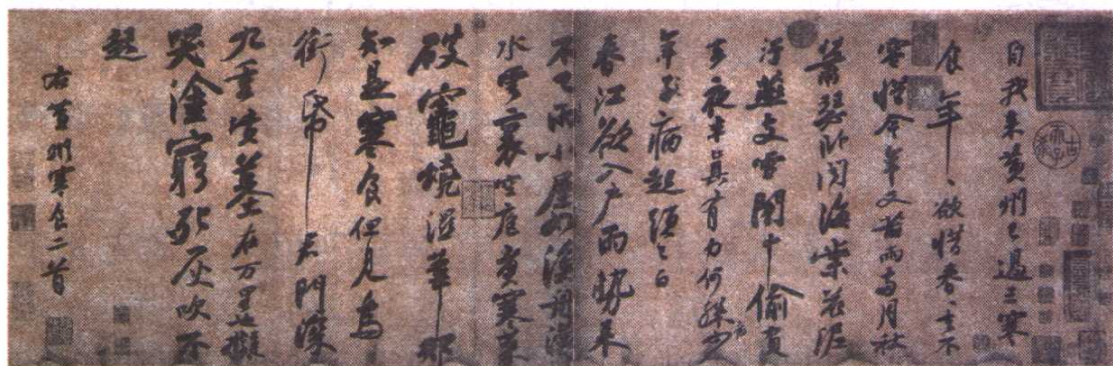 自我來黃州已過三寒
食年、欲惜春、去不
容惜今年又苦雨兩月秋
蕭瑟卧聞海棠花泥
汙燕支雪闇中偷負
去夜半真有力何殊病少
年子病起頭已白
春江欲入戶雨勢來
不已雨小屋如漁舟濛、
水雲裏空庖煮寒菜
破竈燒濕葦那
知是寒食但見烏
銜帋君門深
九重墳墓在万里也擬
哭塗窮死灰吹不
起
右黃州寒食二首